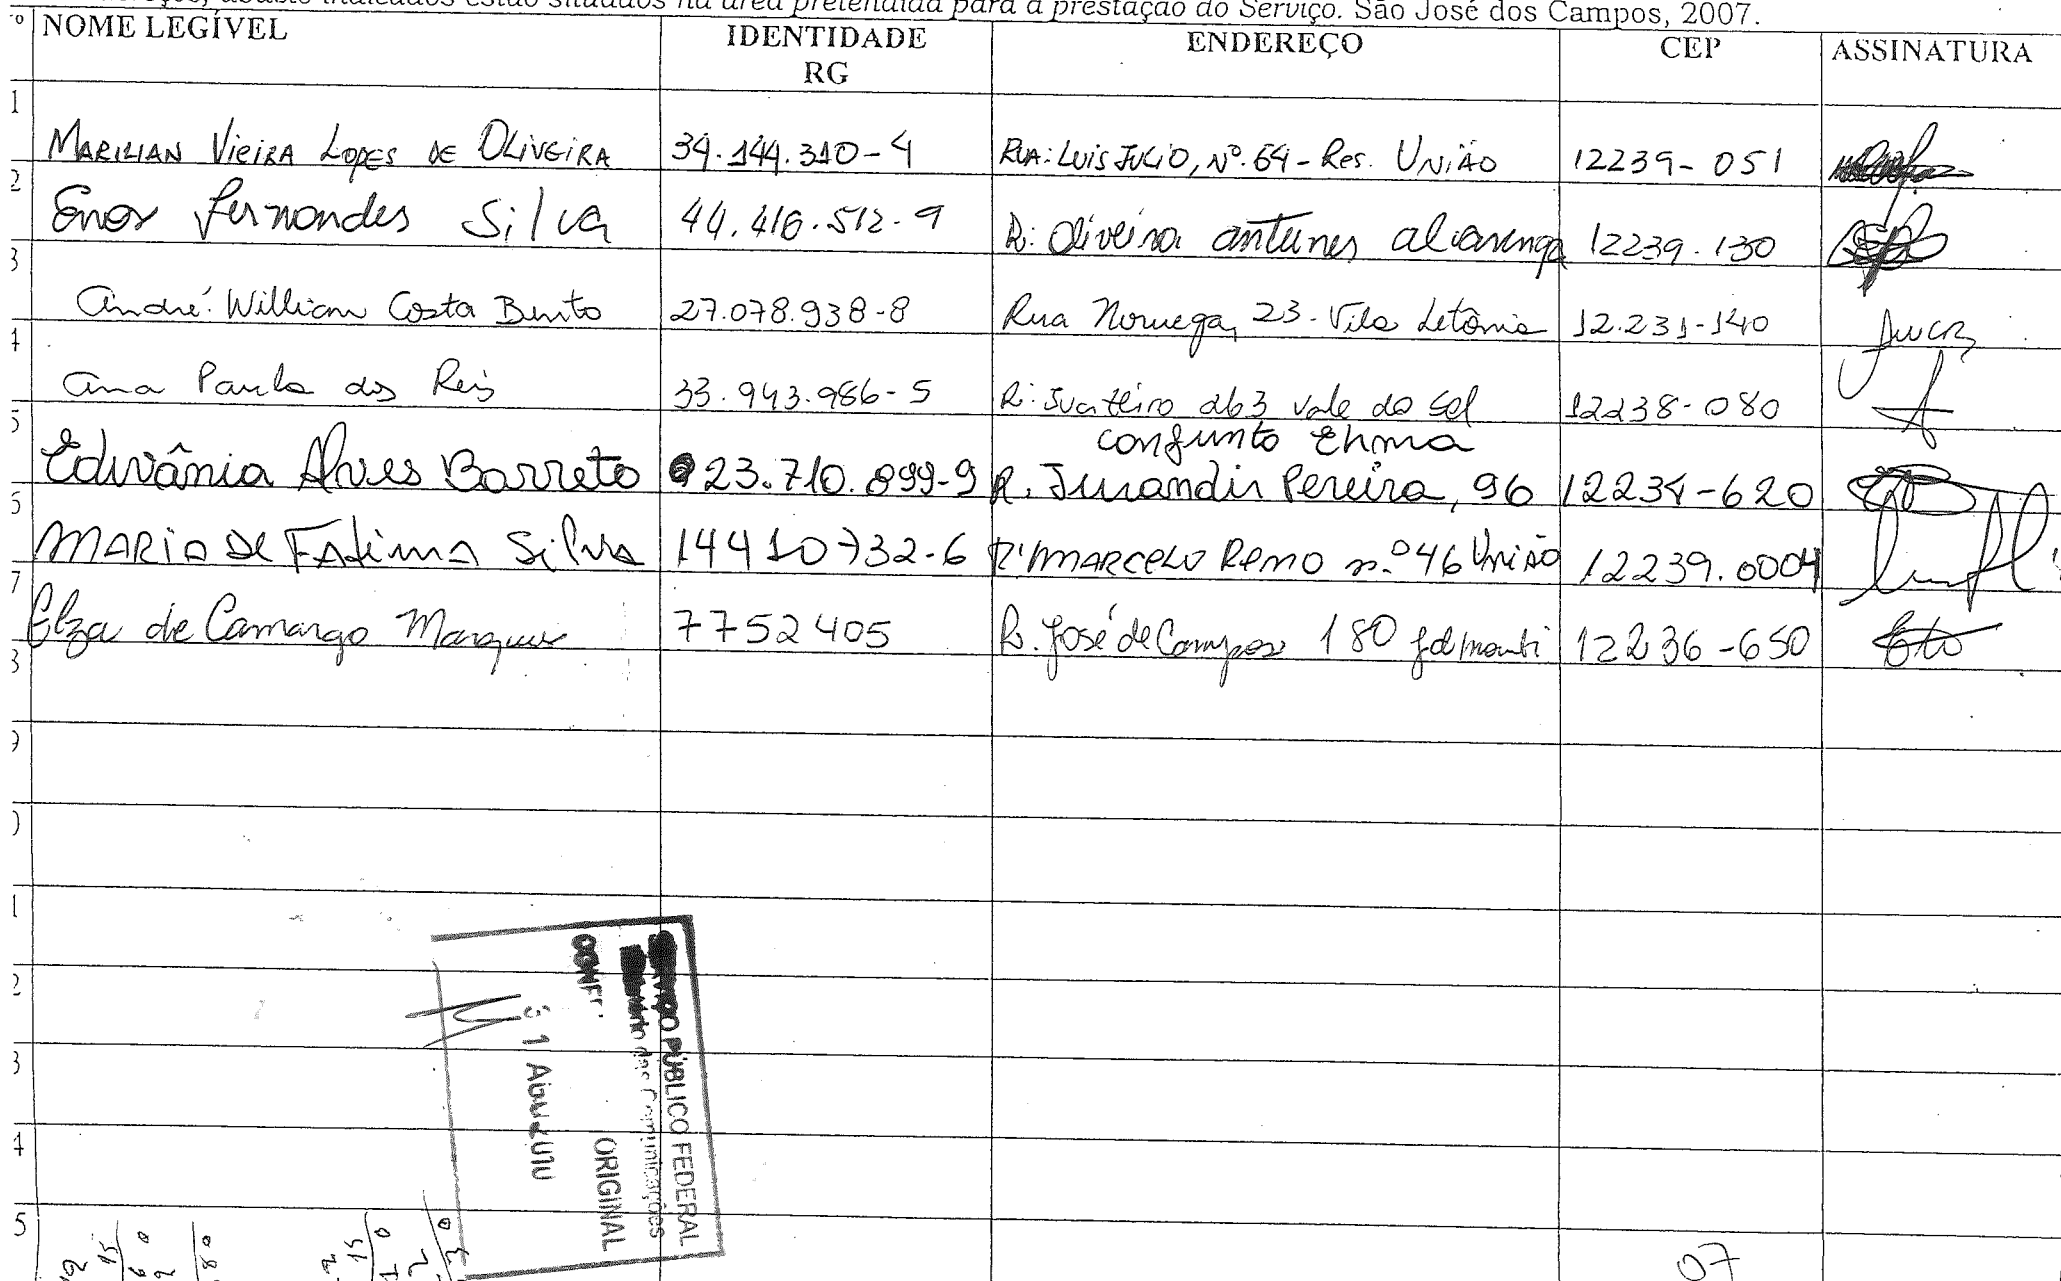 abaixo indicados estão situados na área pretendida para a prestação do Serviço. São José dos Campos, 2007.
NOME LEGÍVEL IDENTIDADE RG ENDEREÇO CEP ASSINATURA
1 MARILIAN VIEIRA LOPES DE OLIVEIRA 34.144.310-4 RUA: LUIS JULIO, Nº. 64 - Res. UNIÃO 12239-051
2 Enos Fernandes Silva 44.416.512-9 R: Oliveira antunes alvarenga 12239.130
3 André William Costa Bento 27.078.938-8 Rua Noruega, 23 - Vila Letônia 12.231-140
4 Ana Paula dos Reis 33.943.986-5 R: 263 vale do sol 12238-080
5 Edivânia Alves Barreto 23.710.899-9 R. Jurandir Pereira, 96 conjunto Elmano 12234-620
MARIA DE FATIMA Silva 14410732-6 R: MARCELO REMO n.º 46 UNIÃO 12239.0004
7 Elza de Camargo Marques 7752405 R. José de Campos 180 12236-650
SERVIÇO PÚBLICO FEDERAL
das Comunicações
CONF. ORIGINAL
1
2
3
4
5
07